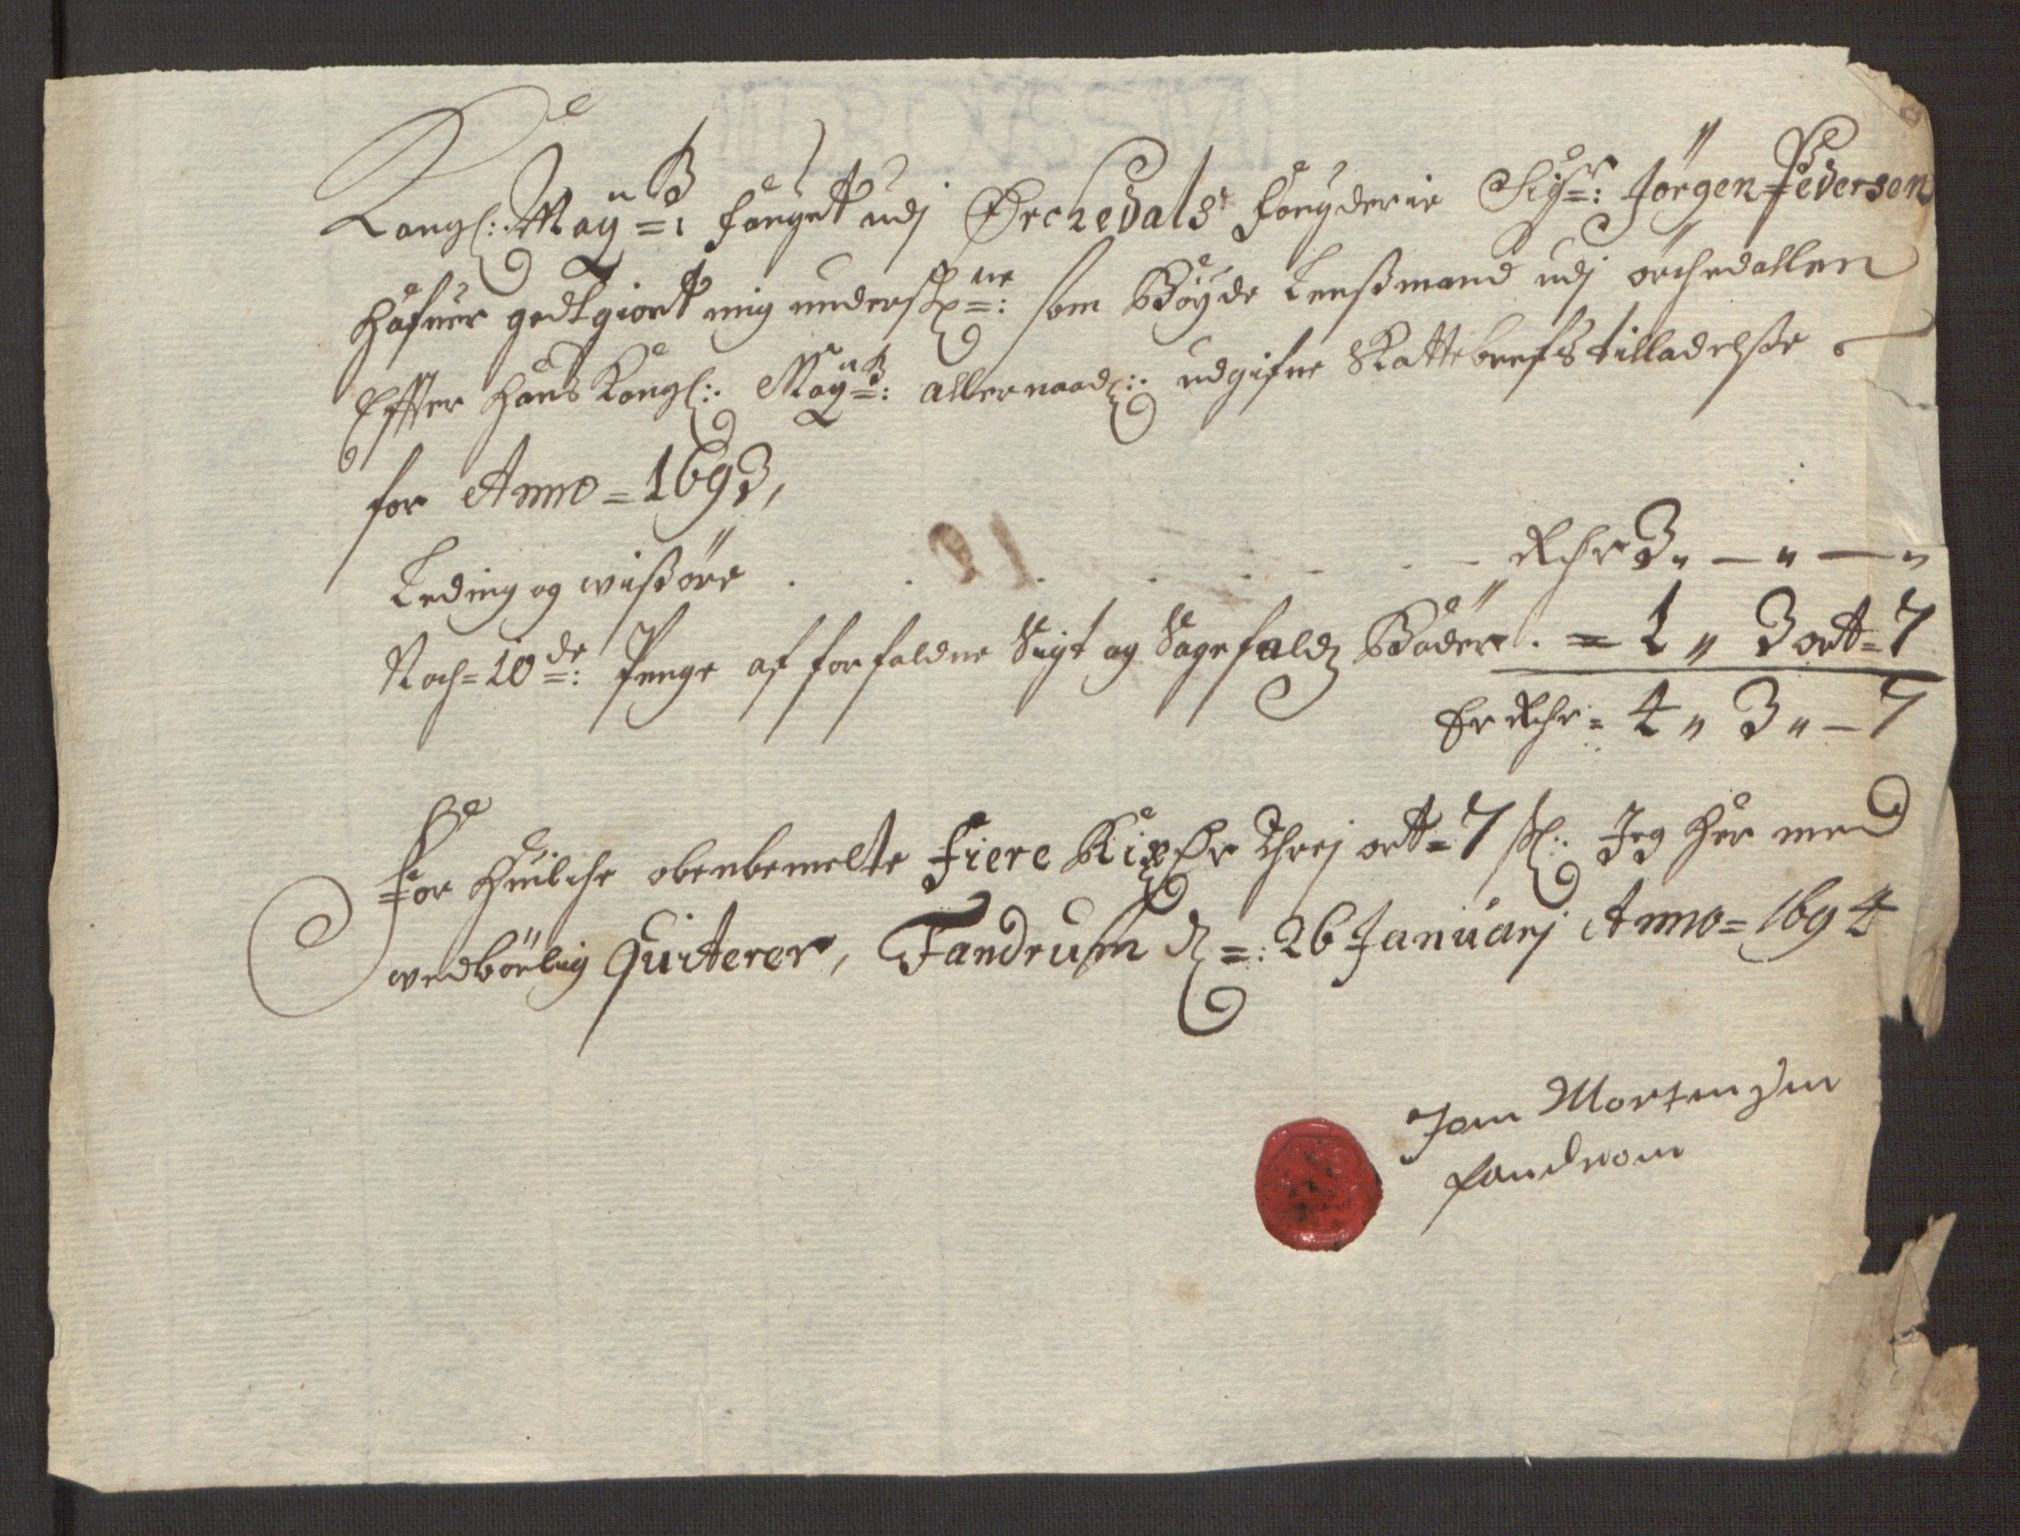 Kongl: May=ts: fougett udj Ørchedals fougderie Sigr=: Jörgen Pedersen
Hafuer godtgiort mig undersch=ne: som Böyde Lensmand udj örchedallen
Effter Hans Kongl: May=ts: allernaad: udgifne Skattebrefs tilladelsse
for Anno = 1693,
Leding og wissöre . . . . . . . Rdr 3 „ — „ — „
Noch = 10de=: Penge af forfaldne Sigt og Sagefalds Böder . = 1 „ 3 ort = 7
Er Rdr = 4 „ 3 „ — 7
For Huilche obenbemelte Fiere Rixdr Threj ort = 7 sk: Jeg Her med
wedbörlig Quiterer, Fandrum d=: 26 Januarj Anno = 1694
Jon Mortensen
fandrom